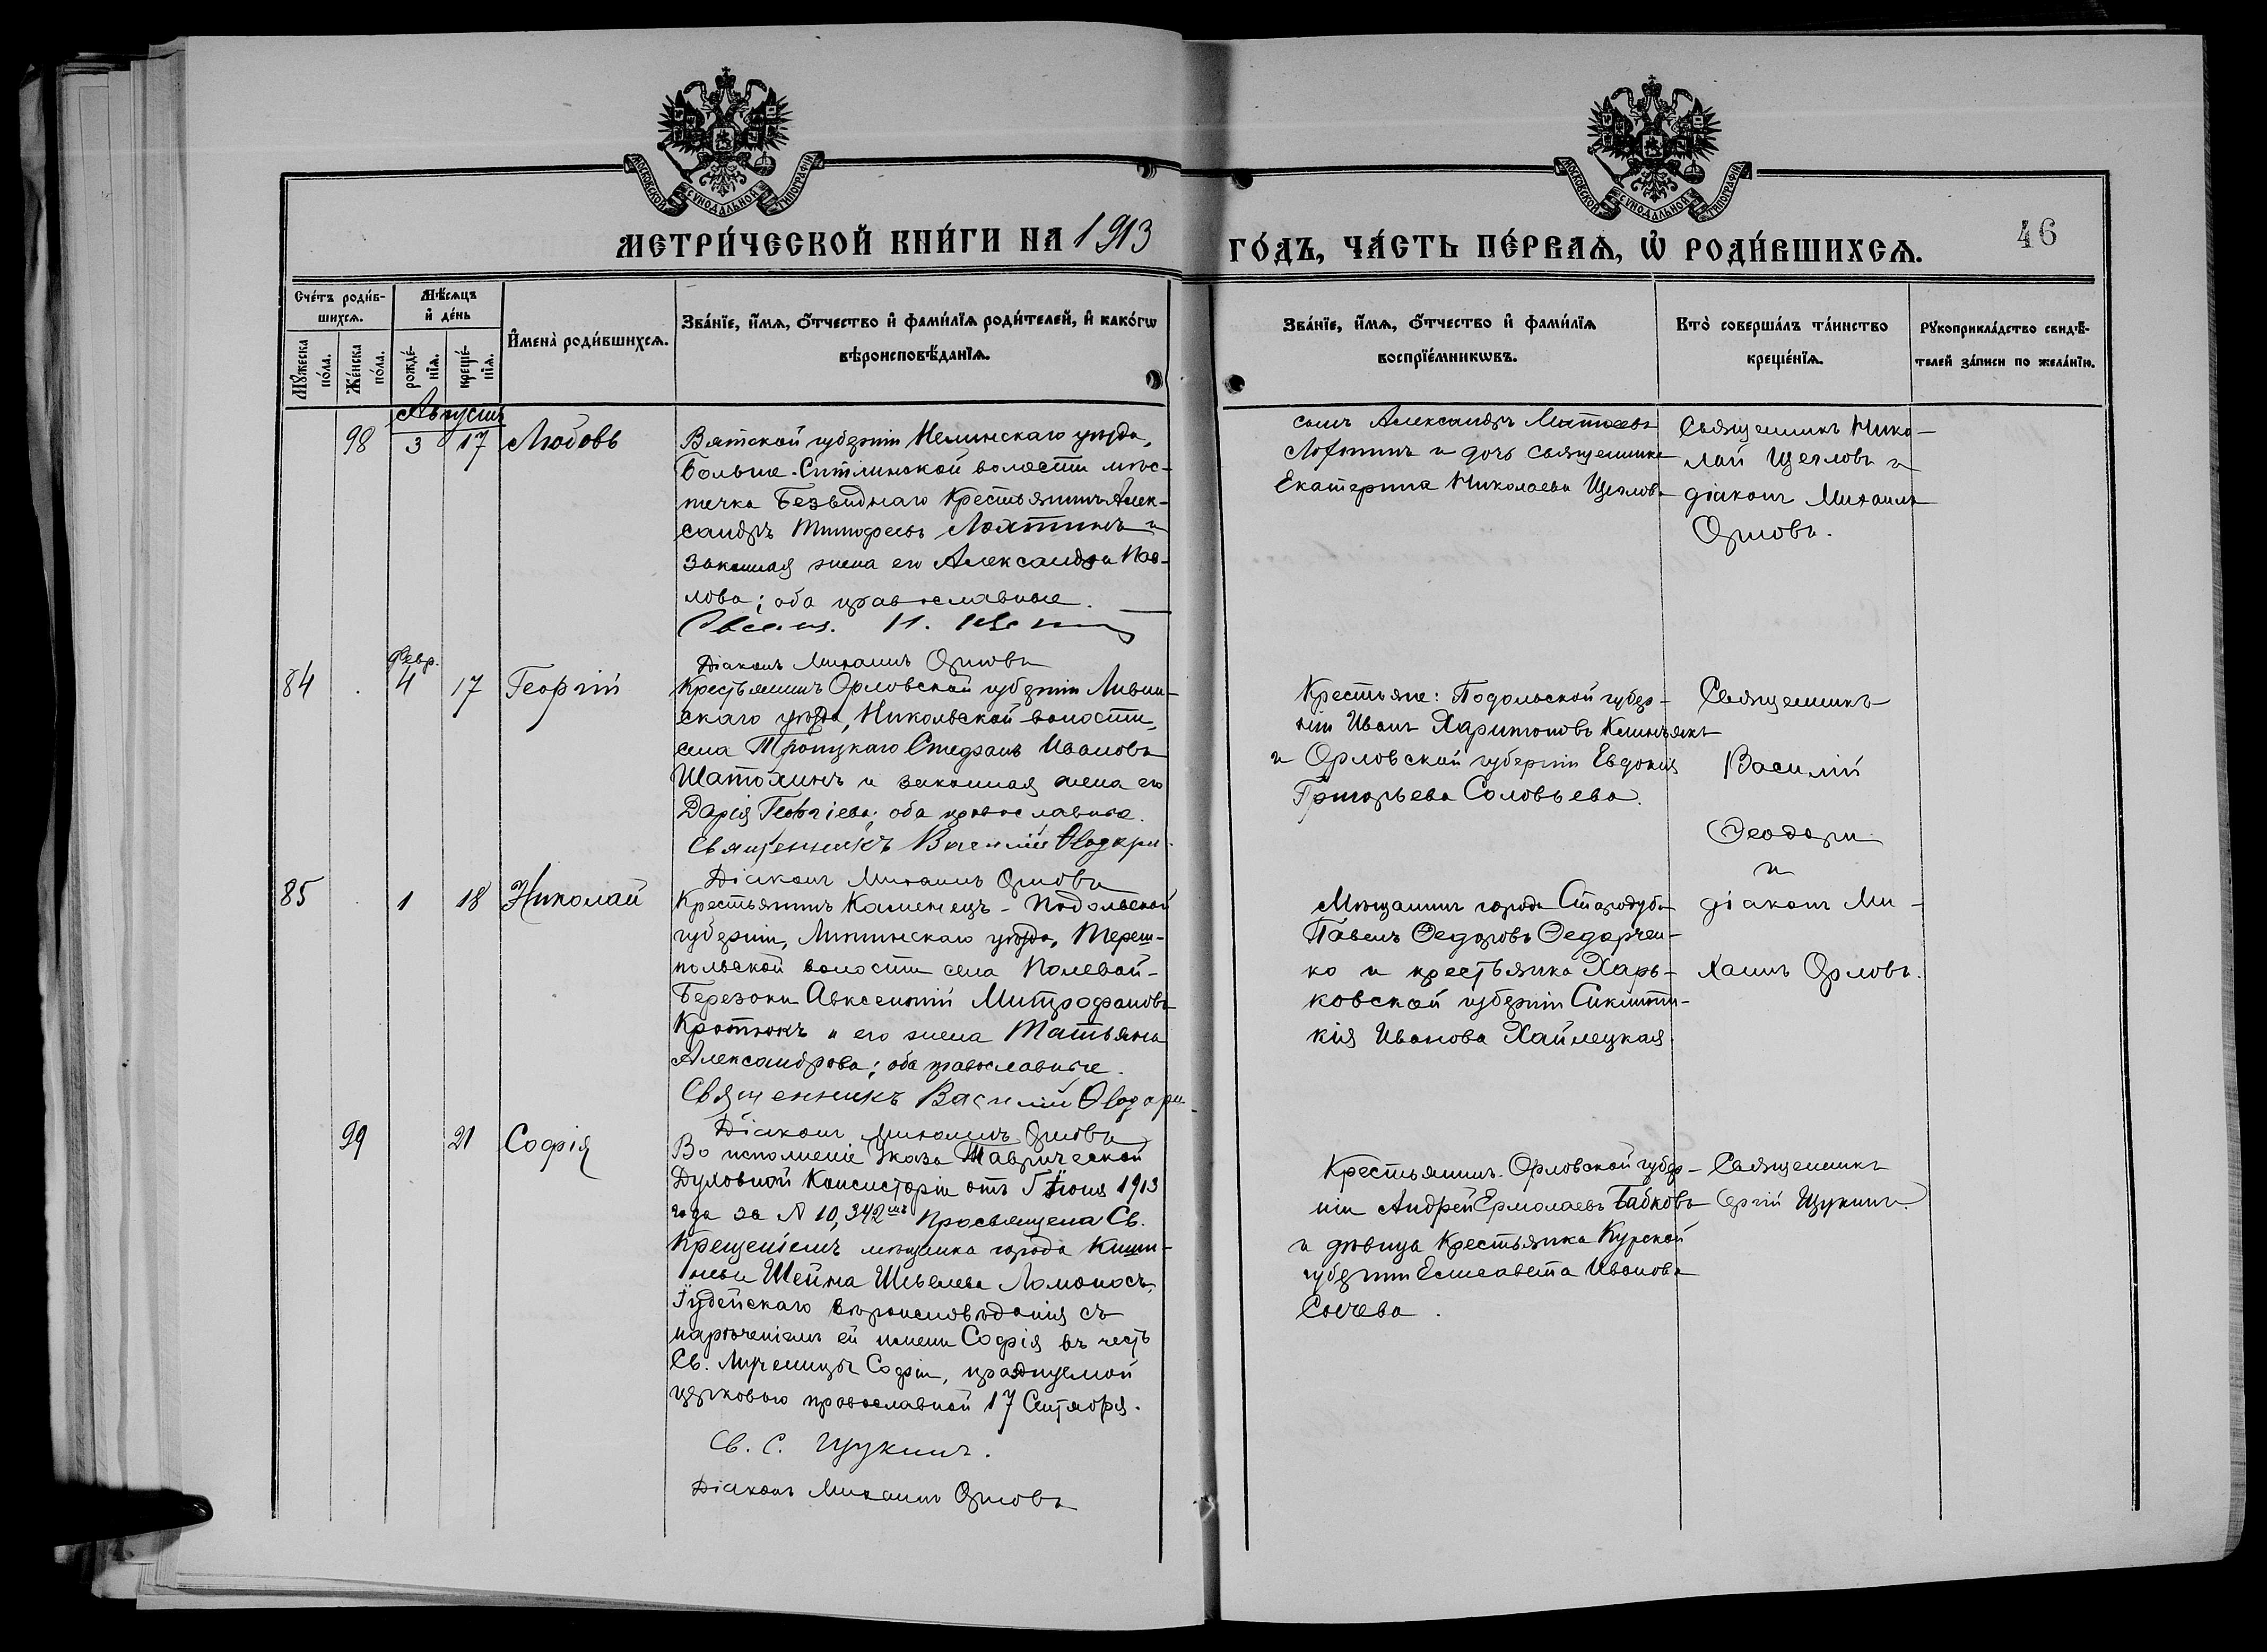 МОСКОВСКОЙ СУНОДАЛЬНОЙ ТИПОГРАФІИ
МОСКОВСКОЙ СУНОДАЛЬНОЙ ТИПОГРАФІИ
МЕТРИ́ЧЕСКОЙ КНИ́ГИ НА 1913
ГО́ДЪ, ЧА́СТЬ ПЕ́РВАѦ, Ѡ҆ РОДИ́ВШИХСѦ.
46
Сче́тъ роди́в-
шихсѧ.
Мѣ́сѧцъ
и҆ де́нь
И҆мена̀ роди́вшихсѧ.
Зва́нїе, и҆́мѧ, ѻ҆́тчество и҆ фами́лїѧ роди́телей, и҆ како́гѡ
вѣроисповѣ́данїѧ.
Мꙋ́жеска по́ла.
Же́нска по́ла.
рожде́-нїѧ.
креще́-нїѧ.
Зва́нїе, и҆́мѧ, ѻ҆́тчество и҆ фами́лїѧ
воспрїе́мникѡвъ.
Кто̀ соверша́лъ та́инство
креще́нїѧ.
Рꙋкоприкла́дство свидѣ́-
телей за́писи по жела́нїю.
Августъ
98 3 17 Любовь
Вятской губерніи уѣзда,
Больше-Ситминской волости мѣс-
течка Безвиднаго Крестьянинъ Алек-
сандръ Тимофеевъ Лоптинъ и
законная жена его Александра Пав-
лова; оба православные.
Діаконъ Михаилъ Орловъ
сынъ Александръ Матѳеевъ
и дочь священника
Екатерина Николаева Щеглова
Священникъ Нико-
лай Щегловъ и
діаконъ Михаилъ
Орловъ.
Февр.
84 4 17 Георгій
Крестьянинъ Орловской губерніи Ливен-
скаго уѣзда, Никольской волости,
села Троицкаго Стефанъ Ивановъ
Шатохинъ и законная жена его
Дарія Георгіева; оба православные.
Священникъ Василій Ѳеодори
Діаконъ Михаилъ Орловъ
Крестьяне: Подольской губер-
ніи Иванъ Харитоновъ
и Орловской губерніи Евдокія
Григорьева Соловьева.
Священникъ
Василій
Ѳеодори
и
діаконъ Ми-
хаилъ Орловъ.
85 1 18 Николай
Крестьянинъ Каменецъ-Подольской
губерніи, Литинскаго уѣзда, Тереш-
польской волости села Полевой-
Березовки Авксентій Митрофановъ
Кротюкъ и его жена Татьяна
Александрова; оба православные.
Священникъ Василій Ѳеодори
Діаконъ Михаилъ Орловъ
Мѣщанинъ города Стародуба
Павелъ Ѳедоровъ Ѳедорчен-
ко и крестьянка Харь-
ковской губерніи Синклити-
кія Иванова Хайлецкая.
99 21 Софія
Во исполненіе Указа Таврической
Духовной Консисторіи отъ 5 Іюня 1913
года за № 10,342мъ Просвящена Св.
Крещеніемъ мѣщанка города Киши-
нева Шейна Шевелева Ломоносъ,
Іудейскаго вѣроисповѣданія съ
нареченіемъ ей имени Софія въ честь
Св. Мученицы Софіи, празднуемой
церковью православной 17 Сентября.
Св. С. Щукинъ.
Діаконъ Михаилъ Орловъ
Крестьянинъ Орловской губер-
ніи Андрей Ермолаевъ Бабковъ
и дѣвица Крестьянка Курской
губерніи Елисавета Иванова
Сычева.
Священникъ
Сергій Щукинъ.